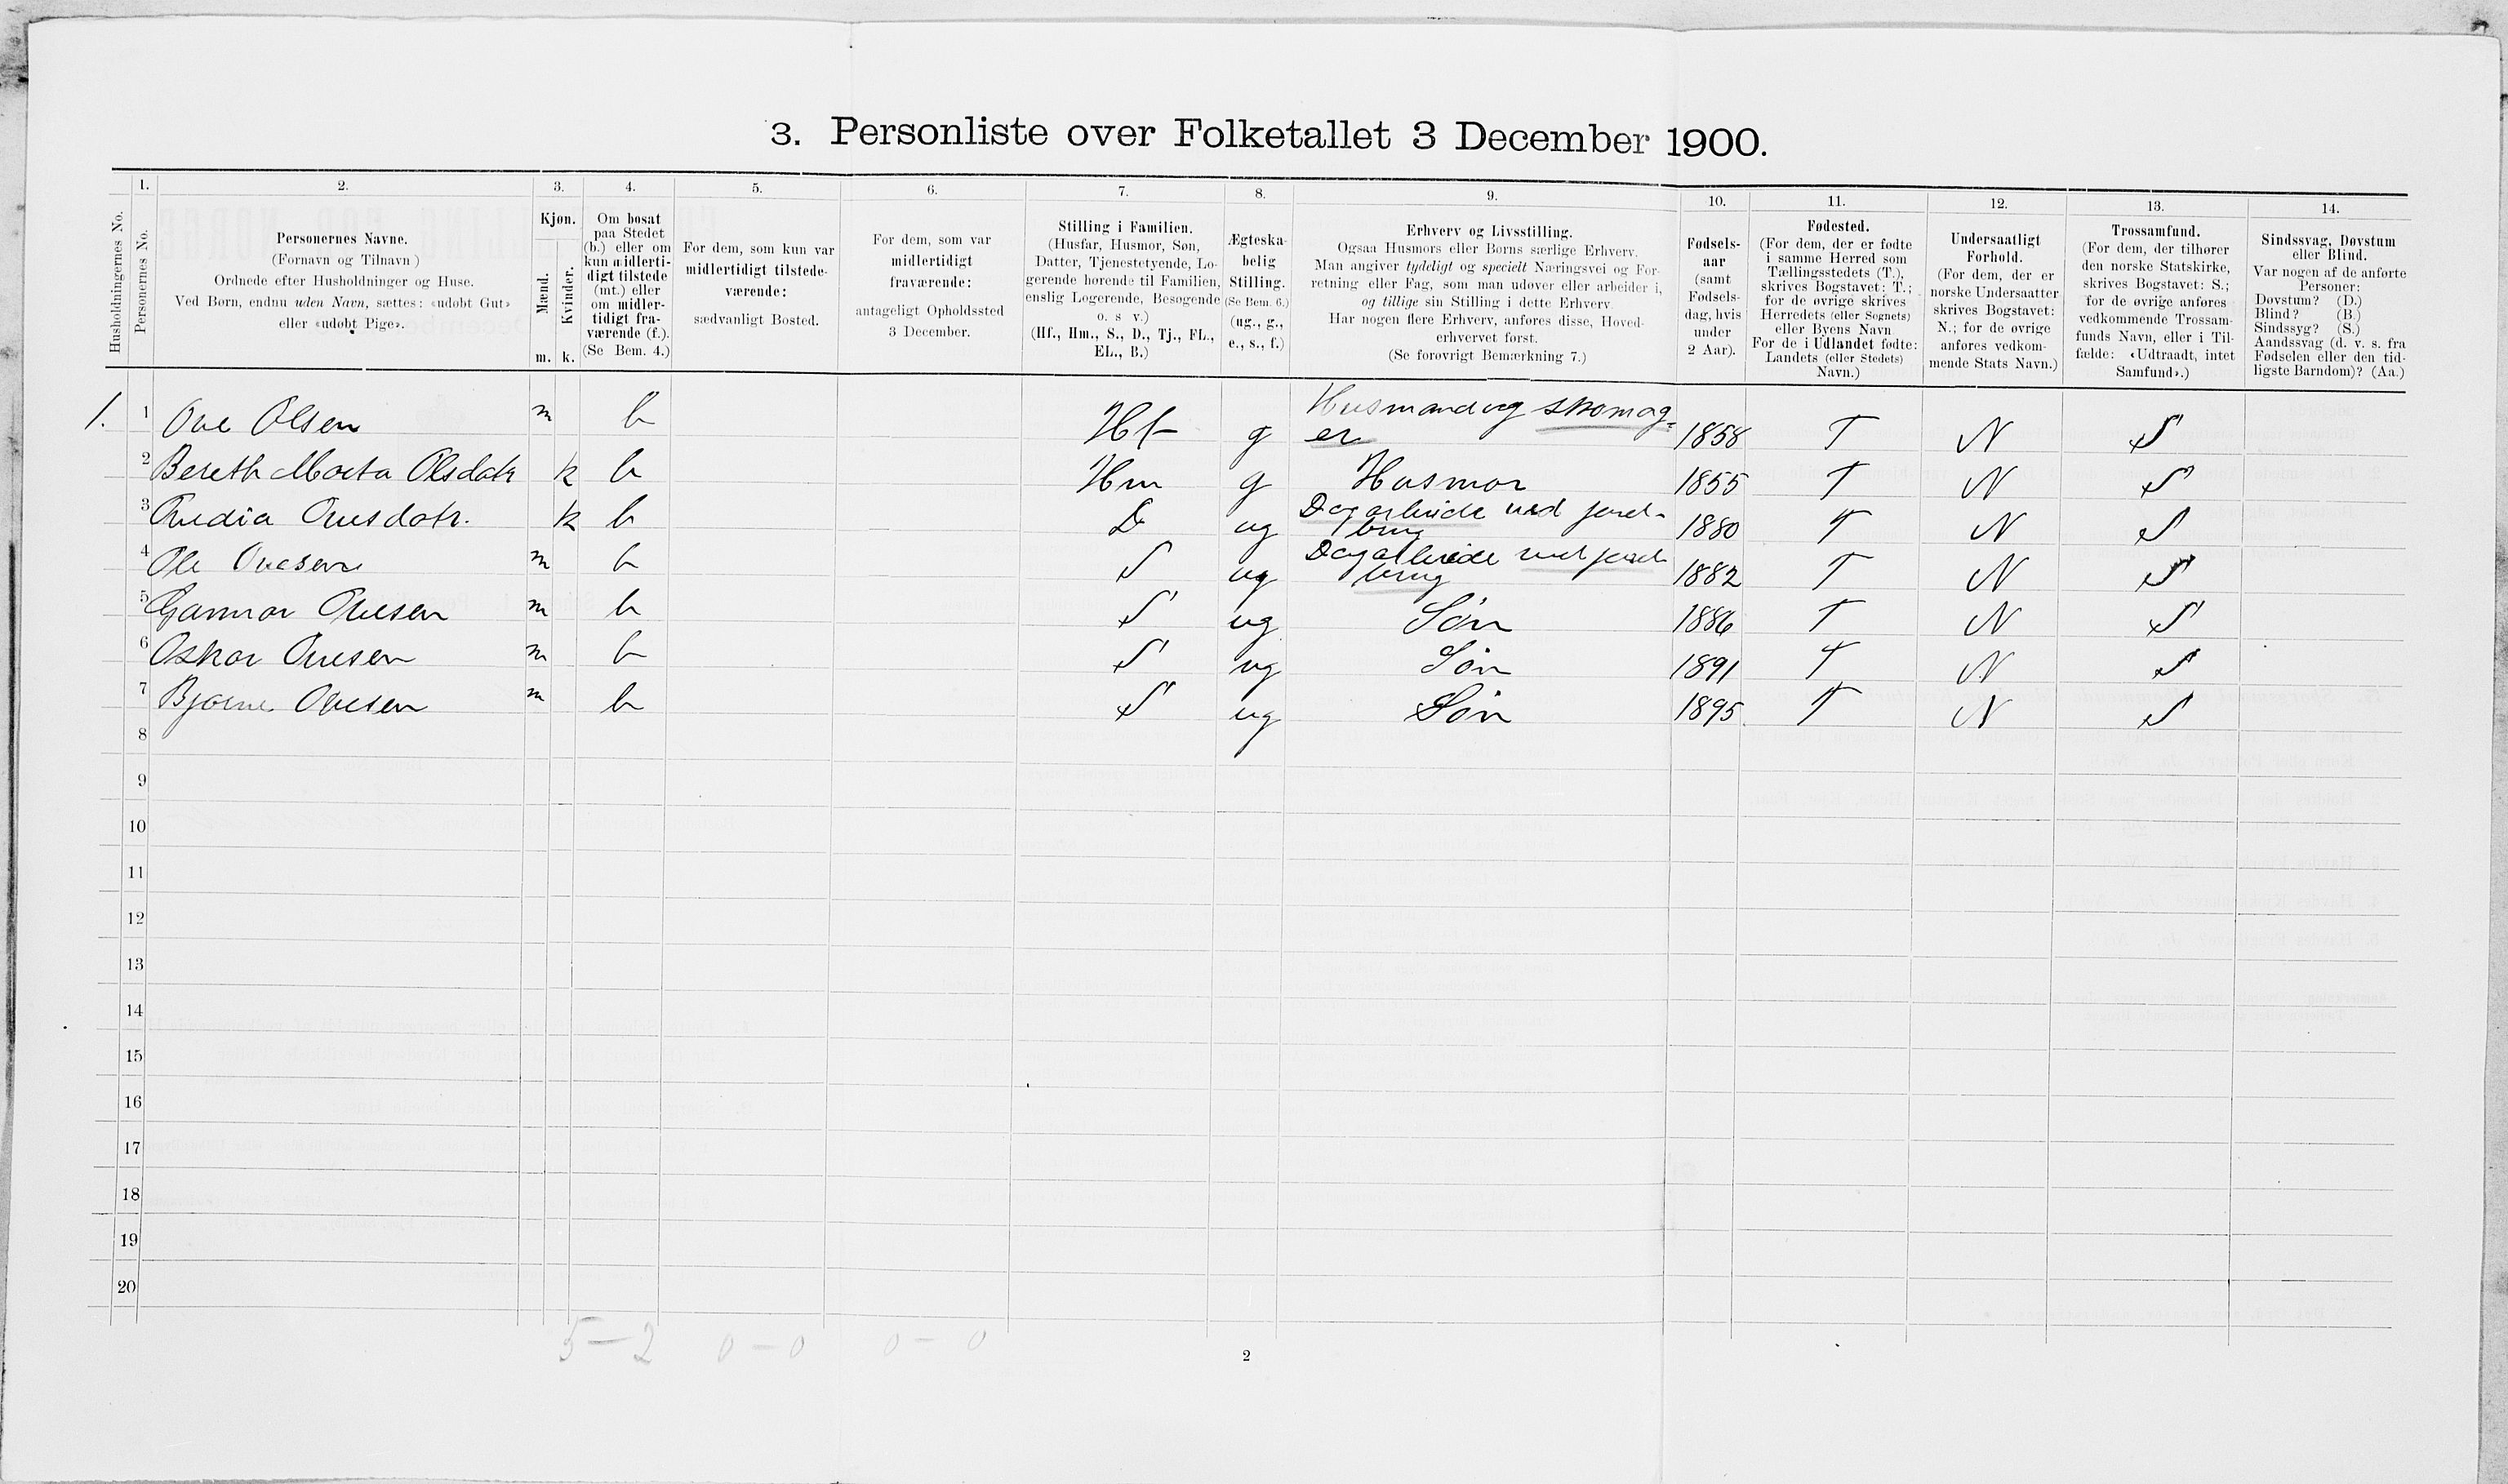 3. Personliste over Folketallet 3 December 1900.
1. 2. 3. 4. 5. 6. 7. 8. 9. 10. 11. 12. 13. 14.
Husholdningernes No.
Personernes No.
Personernes Navne.
(Fornavn og Tilnavn)
Ordnede efter Husholdninger og Huse.
Ved Børn, endnu uden Navn, sættes: «udøbt Gut»
eller «udøbt Pige».
Kjøn.
Mænd.
Kvinder.
m. k.
Om bosat
paa Stedet
(b.) eller om
kun midlerti-
digt tilstede
(mt.) eller
om midler-
tidigt fra-
værende (f.).
(Se Bem. 4.)
For dem, som kun var
midlertidigt tilstede-
værende:
sædvanligt Bosted.
For dem, som var
midlertidigt
fraværende:
antageligt Opholdssted
3 December.
Stilling i Familien.
(Husfar, Husmor, Søn,
Datter, Tjenestetyende, Lo-
gerende hørende til Familien,
enslig Logerende, Besøgende
o. s v.)
(Hf., Hm., S., D., Tj., FL.,
EL., B.)
Ægteska-
belig
Stilling.
(Se Bem. 6.)
(ug., g.,
e., s., f.)
Erhverv og Livsstilling.
Ogsaa Husmors eller Børns særlige Erhverv.
Man angiver tydeligt og specielt Næringsvei og For-
retning eller Fag, som man udøver eller arbeider i,
og tillige sin Stilling i dette Erhverv.
Har nogen flere Erhverv, anføres disse, Hoved-
erhvervet først.
(Se forøvrigt Bemærkning 7.)
Fødsels-
aar
(samt
Fødsels-
dag, hvis
under
2 Aar).
Fødested.
(For dem, der er fødte
i samme Herred som
Tællingsstedets (T.),
skrives Bogstavet: T.;
for de øvrige skrives
Herredets (eller Sognets)
eller Byens Navn
For de i Udlandet fødte:
Landets (eller Stedets)
Navn.)
Undersaatligt
Forhold.
(For dem, der er
norske Undersaatter
skrives Bogstavet:
N.; for de øvrige
anføres vedkom-
mende Stats Navn.)
Trossamfund.
(For dem, der tilhører
den norske Statskirke,
skrives Bogstavet: S.;
for de øvrige anføres
vedkommende Trossam-
funds Navn, eller i Til-
fælde: «Udtraadt, intet
Samfund».)
Sindssvag, Døvstum
eller Blind.
Var nogen af de anførte
Personer:
Døvstum? (D.)
Blind? (B.)
Sindssyg? (S.)
Aandssvag (d. v. s. fra
Fødselen eller den tid-
ligste Barndom)? (Aa.)
1. 1 Ove Olsen m b Hf g Husmand og skomag- er 1858 T N S
2 Bereth Marta Olsdatr k b Hm g Husmor 1855 T N S
3 Ovedia Ovesdatr. k b D ug Dagarbeide ved jord- brug 1880 T N S
4 Ole Ovesen m b S ug Dagarbeide ved jord- brug 1882 T N S
5 Gunnar Ovesen m b S ug Søn 1886 T N S
6 Oskar Ovesen m b S ug Søn 1891 T N S
7 Bjarne Ovesen m b S ug Søn 1895 T N S
8
9
10
11
12
13
14
15
16
17
18
19
20
5 - 2 0 - 0 0 - 0
2